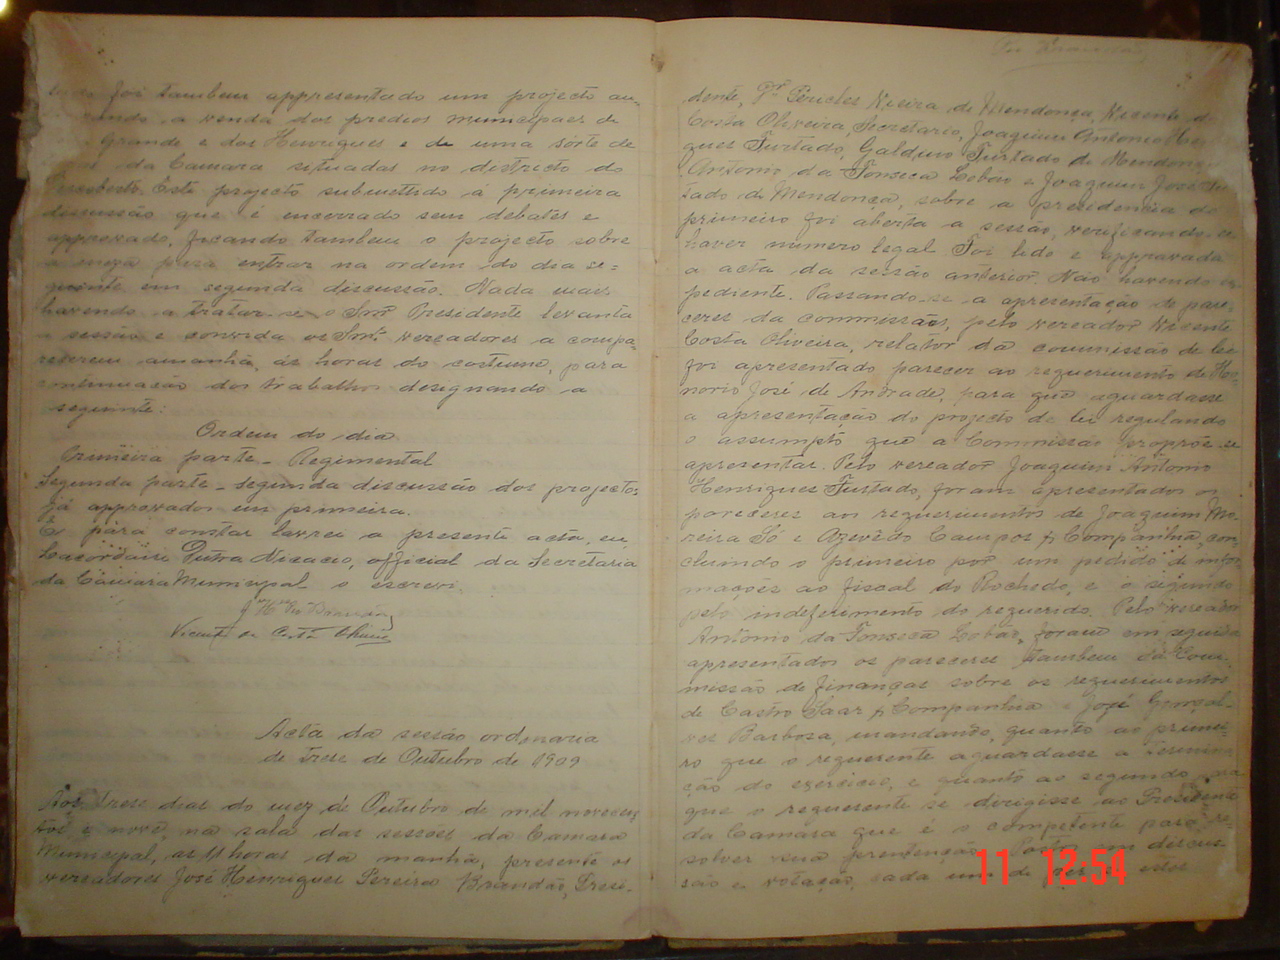 foi tambem appresentado um projecto au-
a venda dos predios municipaes do
Grande e dos Henriques e de uma sorte de
da Camara situadas no districto do
Este projecto submettido á primeira
discussão que é encerrado sem debates e
approvado, ficando tambem o projecto sobre
a meza para entrar na ordem do dia se-
guinte em segunda discussão. Nada mais
havendo a tratar-se o Snr Presidente levanta
a sessão e convida os Snrs vereadores a compa-
recerem amanhã, ás horas do costume, para
continuação dos trabalhos designando a
seguinte:
Ordem do dia
Primeira parte - Regimental
Segunda parte - segunda discussão dos projectos
já approvados em primeira.
E para constar lavrei a presente acta, eu
Dutra Nicacio, official da Secretaria
da Camara Municipal o escrevi.
Vicente da Costa Oliveira
Acta da sessão ordinaria
de trese de Outubro de 1909
Aos trese dias do mez de Outubro de mil novecen-
tos e nove, na sala das sessões da Camara
Municipal, as 11 horas da manhã, presente os
vereadores José Henriques Pereira Brandão, Presi-
dente, Pericles Vieira de Mendonça, Vicente da
Costa Oliveira, Secretario, Joaquim Antonio Hen-
ques Furtado, Galdino Furtado de Mendonça
Antonio da Fonseca Lobão e Joaquim José Fur-
tado de Mendonça, sobre a presidencia do
primeiro foi aberta a sessão, verificando-se
haver numero legal. Foi lido e approvada
a acta da sessão anterior. Não havendo ex-
pediente. Passando-se a apresentação de pare-
ceres da commissão, pelo vereador Vicente
Costa Oliveira, relator da commissão de leis
foi apresentado parecer ao requerimento de Ho-
norio José de Andrade, para que aguardasse
a apresentação do projecto de lei regulando
o assumpto que a Commissão propõe-se
apresentar. Pelo vereador Joaquim Antonio
Henriques Furtado, foram apresentados os
pareceres aos requerimentos de Joaquim Mo-
reira Só e Azevêdo Campos & Companhia, con-
cluindo o primeiro por um pedido de infor-
mações ao fiscal do Rochedo, e o segundo
pelo indeferimento do requerido. Pelo vereador
Antonio da Fonseca Lobão, foram em seguida
apresentados os pareceres tambem da Com-
missão de finanças sobre os requerimentos
de Castro Saar & Companhia e José Gonçal-
ves Barbosa, mandando, quanto ao primei-
ro que o requerente aguardasse a termina-
ção do exercicio, e quanto ao segundo para
que o requerente se dirigisse ao Presidente
da Camara que é o competente para re-
solver sua pretenção. Postos em discus-
são e votação, cada um de
11 12:54